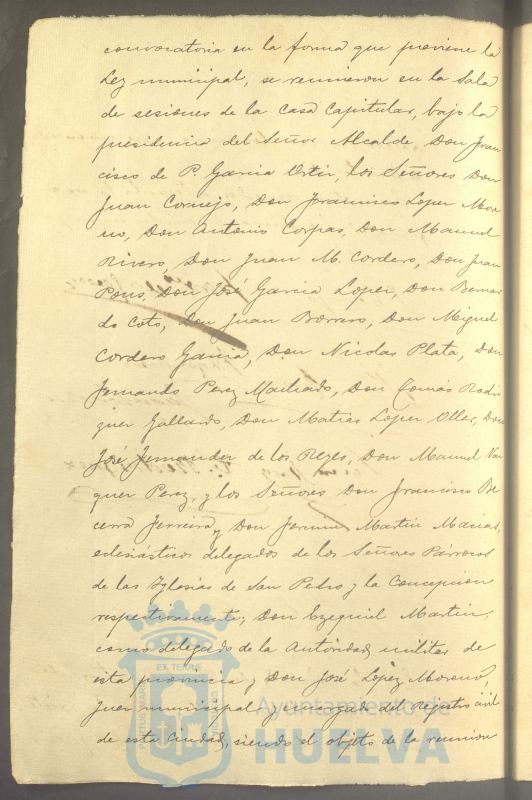 convocatoria en la forma que previene la
Ley municipal, se reunieron en la Sala
de sesiones de la Casa Capitular, bajo la
presidencia del Señor Alcalde, Don Fran
cisco de P. Garcia Ortiz, los Señores Don
Juan Cornejo, Don Francisco Lopez More
no, Don Antonio Corpas, Don Manuel
Rivero, Don Juan M. Cordero, Don Juan
Pons, Don José Garcia Lopez, Don Bernar
do Coto, Don Juan Borrero, Don Miguel
Cordero Garcia, Don Nicolas Plata, Don
Fernando Perez Machado, Don Tomás Rodri
guez Gallardo, Don Matias Lopez Oller, Don
José Fernandez de los Reyes, Don Manuel Vaz
quez Perez, y los Señores Don Francisco Be
cerra Ferreira, y Don Fermin Martin Macias,
eclesiásticos delegados de los Señores Párrocos
de las Yglesias de San Pedro y la Concepcion
respectivamente; Don Ezequiel Martin,
como delegado de la Autoridad militar de
esta provincia y Don José Lopez Moreno,
Juez municipal y encargado del Registro civil
de esta Ciudad, siendo el objeto de la reunion
Ayuntamiento de
HUELVA